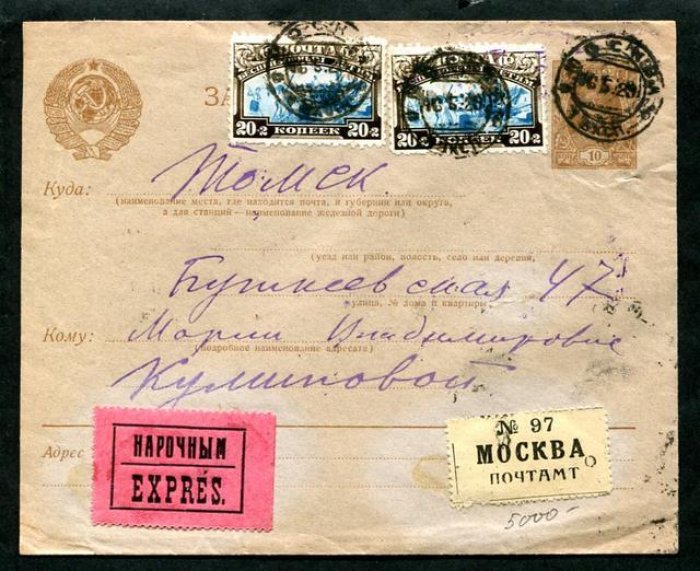 ЗА
ПОЧТА
20+2 КОПЕЕК 20+2
20+2 КОПЕЕК 20+2
10
Куда: Томск
(наименование места, где находится почта, и губернии или округа,
а для станций — наименование железной дороги)
(уезд или район, волость, село или деревня,
47
улица, № дома и квартиры)
Кому: Марии Владимировне
(подробное наименование адресата)
Куликовой
Адрес
НАРОЧНЫМ
EXPRÈS.
№ 97
МОСКВА
ПОЧТАМТ
5000-